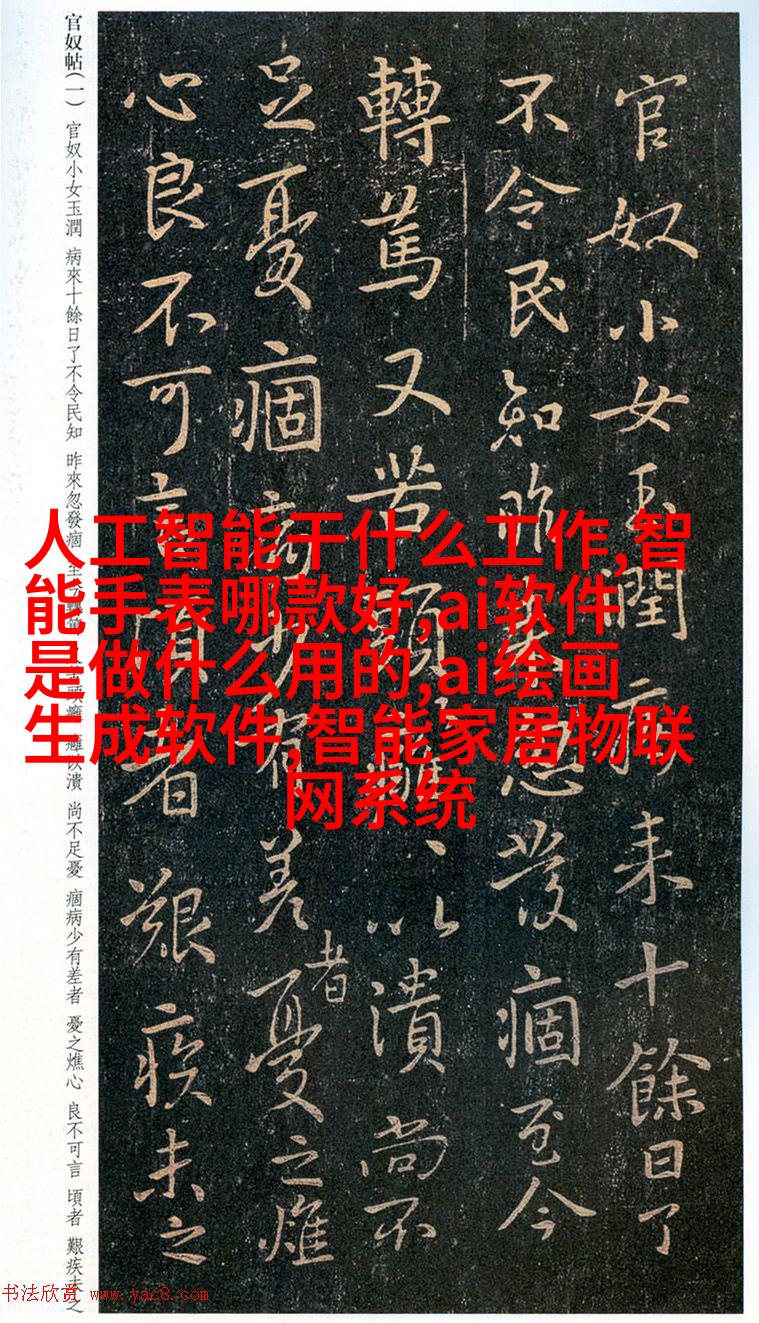 官奴小女玉潤病来十餘日了
不令民知昨来忽發痼至今
轉篤又苦頭癰、以潰尚不
足憂痼病少有差者憂之燋
心良不可言頃者艱疾未之
官奴帖(一) 官奴小女玉潤 病來十餘日了不令民知 昨來忽發痼 頭癰 癰以潰 尚不足憂 痼病少有差者 憂之燋心 良不可言 頃者 艱疾未之
人工智能干什么工作,智
能手表哪款好,ai软件
是做什么用的,ai绘画
生成软件,智能家居物联
网系统
书法欣赏 www.yac8.com